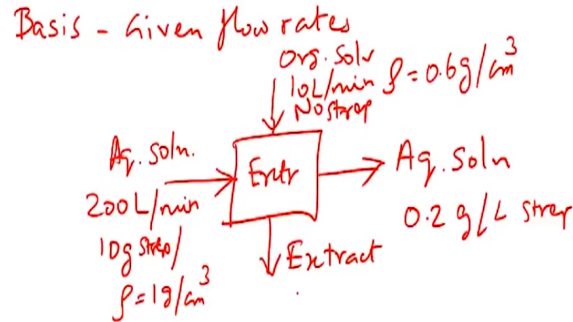 Basis - Given flow rates
Org. Solv
10L/min ρ = 0.6g/cm³
No strep
Aq. Soln.
200L/min
10g strep/
ρ = 1g/cm³
Extr
Aq. Soln
0.2 g/L strep
Extract